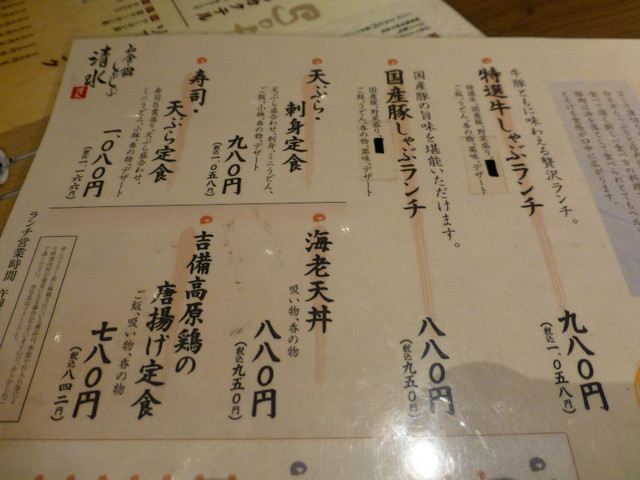 牛豚ともに味わえる贅沢ランチ。
特選牛しゃぶランチ
特選牛、国産豚、野菜盛り
ご飯、うどん、香の物、薬味、デザート
九八〇円
（税込一、〇五八円）
国産豚の旨味を堪能いただけます。
国産豚しゃぶランチ
国産豚、野菜盛り
ご飯、うどん、香の物、薬味、デザート
八八〇円
（税込九五〇円）
天ぷら・
刺身定食
天ぷら盛合わせ、刺身、ミニうどん、
ご飯、小鉢、香の物、デザート
九八〇円
（税込一、〇五八円）
寿司・
天ぷら定食
寿司５貫盛り、天ぷら盛合わせ、
ミニうどん、小鉢、香の物、デザート
一、〇八〇円
（税込一、一六六円）
海老天丼
吸い物、香の物
八八〇円
（税込九五〇円）
吉備高原鶏の
唐揚げ定食
ご飯、吸い物、香の物
七八〇円
（税込八四二円）
しゃぶしゃぶ
清水
ランチ営業時間